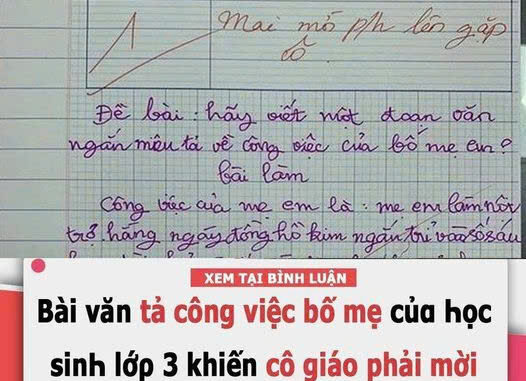 1
Mai mời p/h lên gặp
cô
Đề bài : hãy viết một đoạn văn
ngắn miêu tả về công việc của bố mẹ em?
bài làm
Công việc của mẹ em là : mẹ em làm nội
trợ. hằng ngày đồng hồ kim ngắn trỉ vào số sáu
XEM TẠI BÌNH LUẬN
Bài văn tả công việc bố mẹ của học
sinh lớp 3 khiến cô giáo phải mời